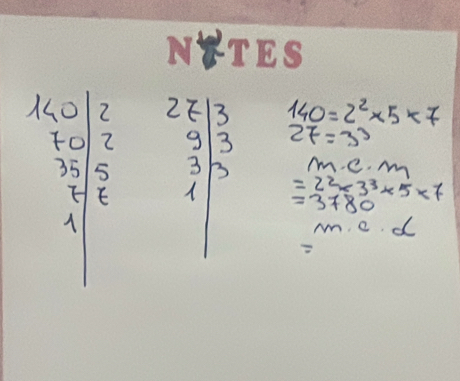 NOTES
140|2
70|2
35|5
7|7
1|
27|3
9|3
3|3
1|
140=2²×5×7
27=3³
m.c.m
=2²×3³×5×7
=3780
m.c.d
=